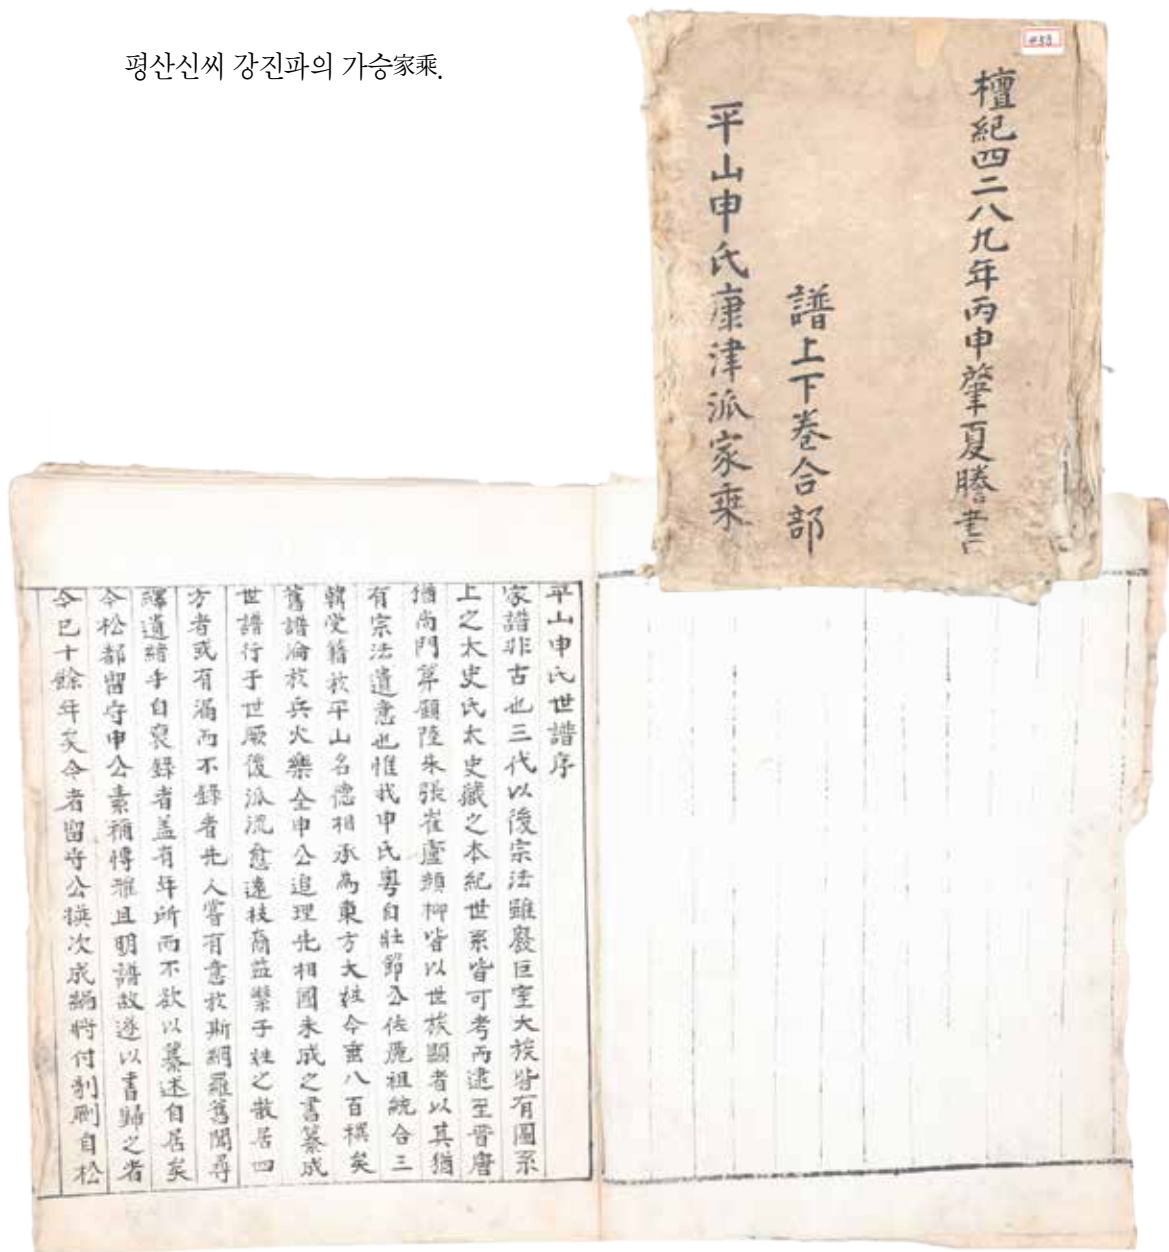 평산신씨 강진파의 가승家乘.
#53
檀紀四二八九年丙申肇夏謄書
譜上下卷合部
平山申氏康津派家乘
平山申氏世譜序
家譜非古也三代以後宗法雖廢巨室大族皆有圖系
上之太史氏太史藏之本紀世系皆可考而逮至晋唐
猶尚門第顧陸朱張崔盧類柳皆以世族顯者以其猶
有宗法遺意也惟我申氏粤自壯節公佐麗祖統合三
韓受籍於平山名德相承爲東方大姓今垂八百禩矣
舊譜淪於兵火樂全申公追理先相國未成之書纂成
世譜行于世厥後派流愈遠枝裔益繁子姓之散居四
方者或有漏而不錄者先人嘗有意於斯網羅舊聞尋
繹遺緖手自裒錄者盖有年所而不欲以纂述自居矣
今松都留守申公素稱博雅且明譜故遂以書歸之者
今已十餘年矣今者留守公撰次成編將付剞劂自松